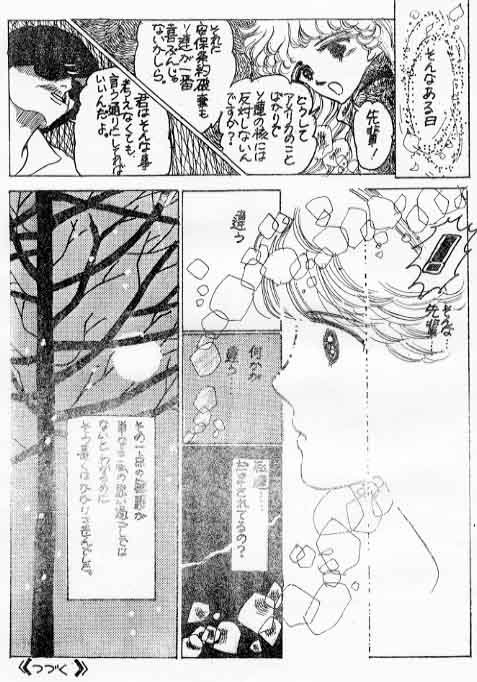 そんなある日
先輩!
どうして
アメリカのこと
ばかりで
ソ連の核には
反対しないん
ですか?
それに
安保条約破棄も
ソ連が一番
喜ぶんじゃ
ないかしら。
君はそんな事
考えなくても
言う通りにしてれば
いいんだよ。
そんな
先輩……
違う
何かが
違う……
私達……
だまされてるの?
その一点の疑惑が
単なる一成の思い過しでは
ないとわかるのに
そう長くはかかりませんでした。
《つづく》